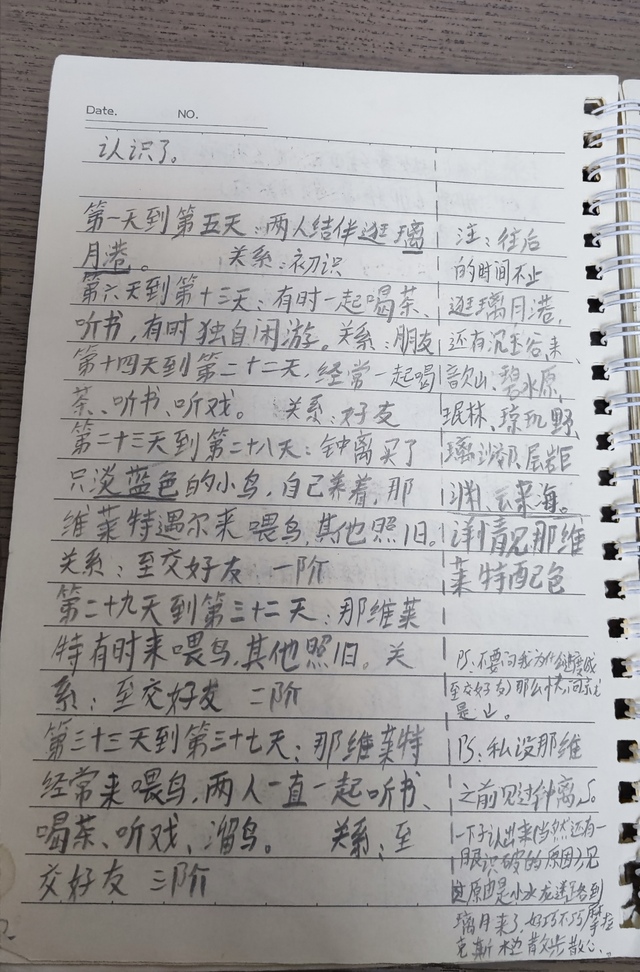 Date.
NO.
认识了。
第一天到第五天：两人结伴逛璃
月港。 关系：初识
第六天到第十三天：有时一起喝茶、
听书，有时独自闲游。关系：朋友
第十四天到第二十二天，经常一起喝
茶、听书、听戏。 关系：好友
第二十三天到第二十八天：钟离买了
只淡蓝色的小鸟，自己养着，那
维莱特遇尔来喂鸟，其他照旧。
关系：至交好友 一阶
第二十九天到第三十二天：那维莱
特有时来喂鸟，其他照旧。关
系：至交好友 二阶
第三十三天到第三十七天：那维莱特
经常来喂鸟，两人一直一起听书、
喝茶、听戏、溜鸟。 关系：至
交好友 三阶
注：往后
的时间不止
逛璃月港，
还有沉玉谷、来
歆山、碧水原、
珉林、琼玑野、
璃沙郊、层岩巨
渊、云来海。
详情见那维
莱特配色
PS：不要问我为什么
至交好友）那么快，问
是山。
PS：私设那维
之前见过钟离，
一下子认出来（当然还有一
眼识破的原因），见
原由是小水龙迷路到
璃月来了，好巧不巧摩拉
克斯 散步散心。